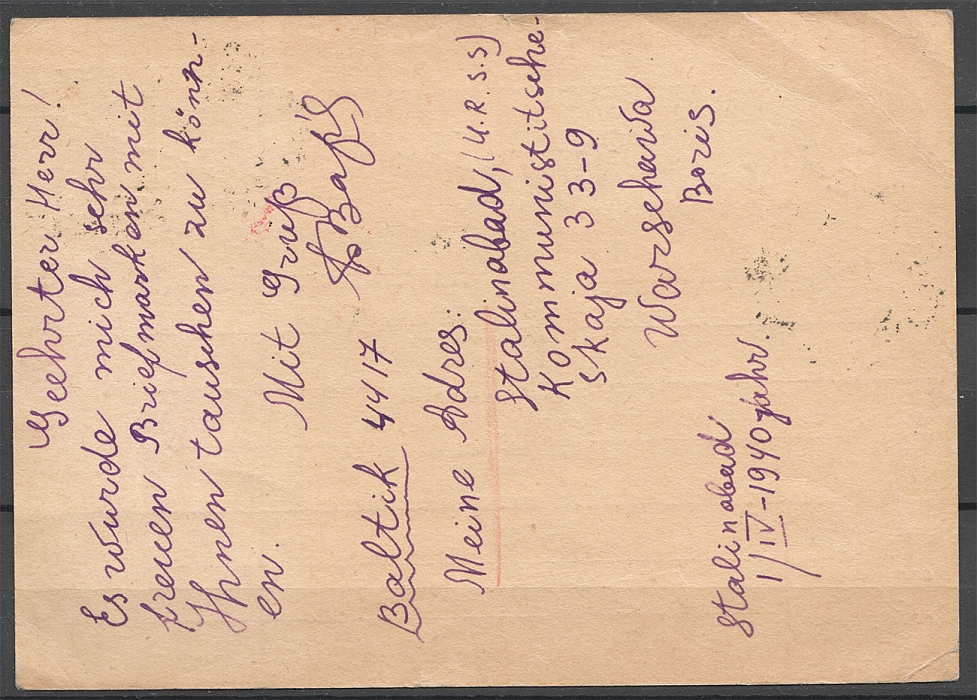 Geehrter Herr!
Es wurde mich sehr
freuen Briefmarken mit
Ihnen tauschen zu könn-
en.
Mit Gruß
Baltik 4417
Meine Adres:
Stalinabad, (U.R.S.S)
Kommunistitsche-
skaja 33-9
Warschawa
Boris.
Stalinabad
1/IV-1940 jahr.